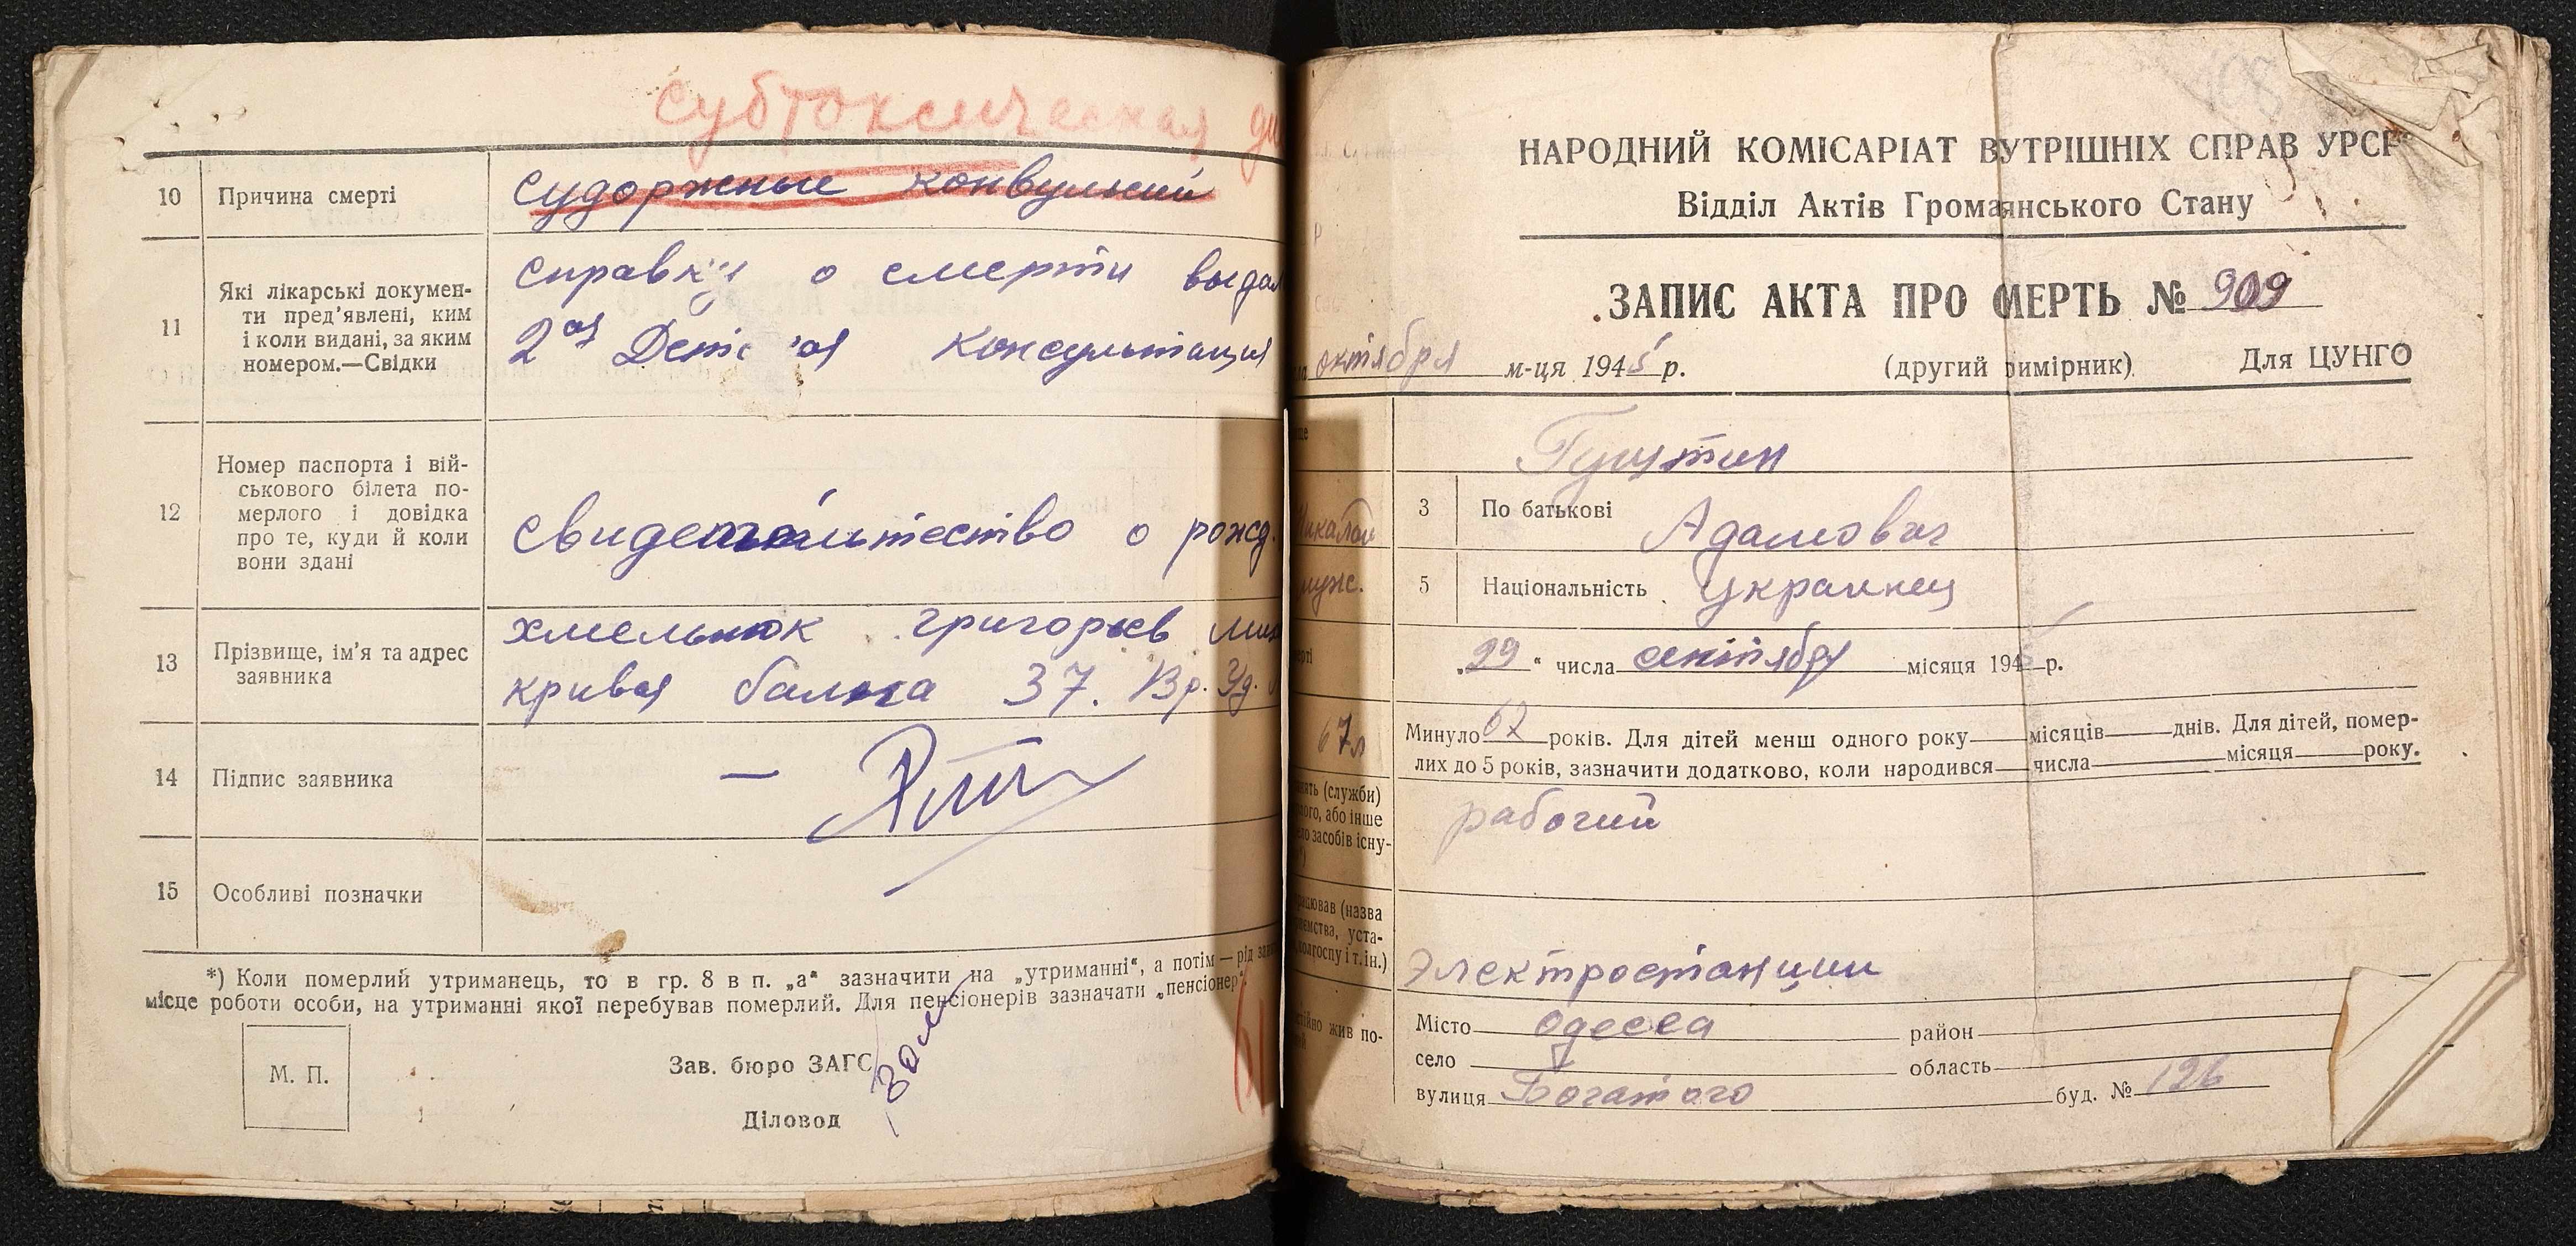 субтоксическая ди
10 Причина смерти судоржные конвульсий
11 Які лікарські докумен-
ти пред'явлені, ким
і коли видані, за яким
номером.—Свідки
справку о смерти выдал
2ая консультация
12 Номер паспорта і вій-
ськового білета по-
мерлого і довідка
про те, куди й коли
вони здані
о рожд.
13 Прізвище, ім'я та адрес
заявника
хмельнюк григорьев
кривая балка 37.
14 Підпис заявника
15 Особливі позначки
*) Коли померлий утриманець, то в гр. 8 в п. „а“ зазначити на „утриманні“, а потім — рід
місце роботи особи, на утриманні якої перебував померлий. Для пенсіонерів зазначати „пенсіонер“
М. П.
Зав. бюро ЗАГС
Діловод
НАРОДНИЙ КОМІСАРІАТ ВУТРІШНІХ СПРАВ УРСР
Відділ Актів Громаянського Стану
ЗАПИС АКТА ПРО МЕРТЬ № 909
октября м-ця 1945 р. (другий римірник) Для ЦУНГО
3 По батькові Адамович
муж. 5 Національність Украинец
29 “ числа сентября місяця 194 р.
67л Минуло 67 років. Для дітей менш одного року місяців днів. Для дітей, помер-
лих до 5 років, зазначити додатково, коли народився числа місяця року.
(служби)
ого, або інше
засобів існу-
рабочий
ював (назва
ємства, уста-
олгоспу і т. ін.)
Электростанции
ійно жив по-
Місто Одесса район
село область
вулиця Богатого буд. № 126